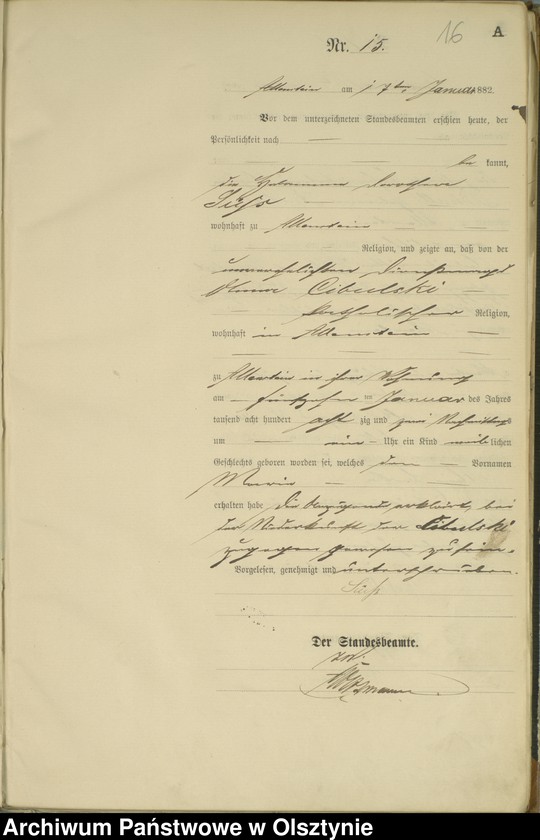 16 A
Nr. 15.
Allenstein am 17ten Januar 1882.
Vor dem unterzeichneten Standesbeamten erschien heute, der
Persönlichkeit nach
be kannt,
die Hebamme Dorothea
Süss
wohnhaft zu Allenstein
Religion, und zeigte an, daß von der
unverehelichten Dienstmagd
Cibulski
katholischer Religion,
wohnhaft in Allenstein
zu Allenstein in ihrer Wohnung
am fünfzehn ten Januar des Jahres
tausend acht hundert acht zig und zwei Nachmittags
um ein Uhr ein Kind weib lichen
Geschlechts geboren worden sei, welches den Vornamen
Maria
erhalten habe. Die Anzeigende erklärt, bei
der Niederkunft der Cibulski
zugegen gewesen zu sein.
Vorgelesen, genehmigt und unterschrieben.
Süß
Der Standesbeamte.
Archiwum Państwowe w Olsztynie